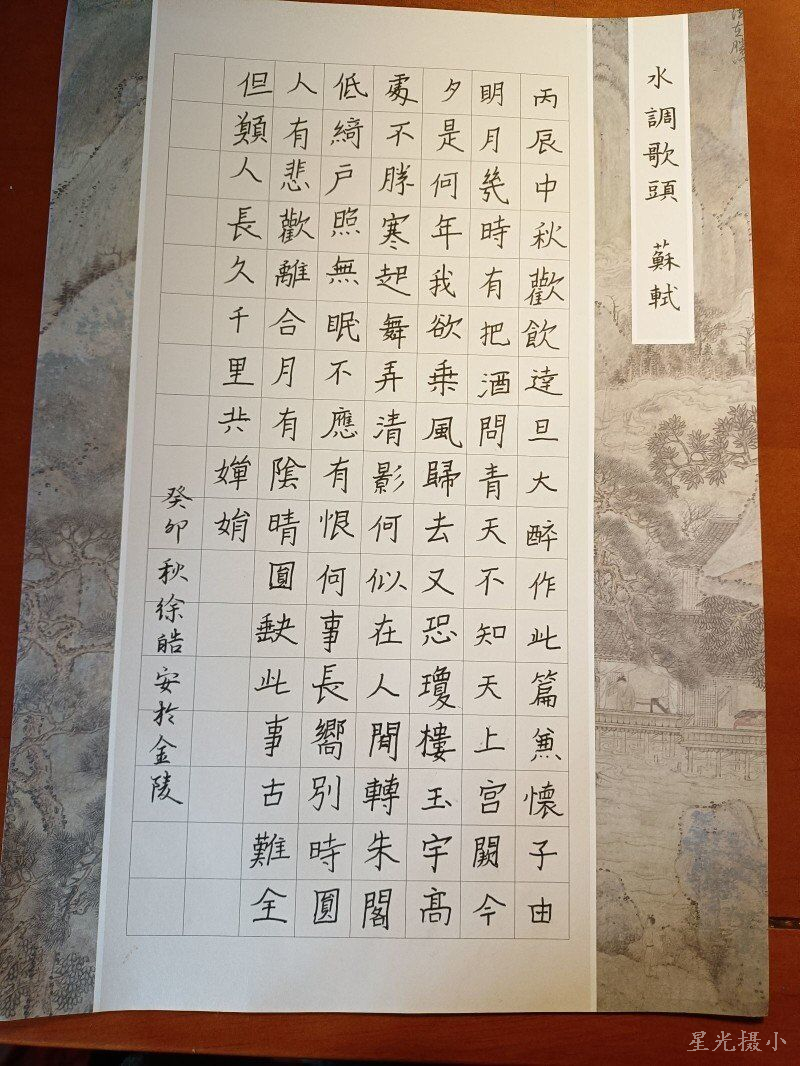 水調歌頭 蘇軾
丙辰中秋歡飲達旦大醉作此篇兼懷子由
明月幾時有把酒問青天不知天上宮闕今
夕是何年我欲乗風歸去又恐瓊樓玉宇高
處不勝寒起舞弄清影何似在人間轉朱閣
低綺戶照無眠不應有恨何事長嚮別時圓
人有悲歡離合月有陰晴圓缺此事古難全
但願人長久千里共嬋娟
癸卯秋徐皓安於金陵
星光摄小